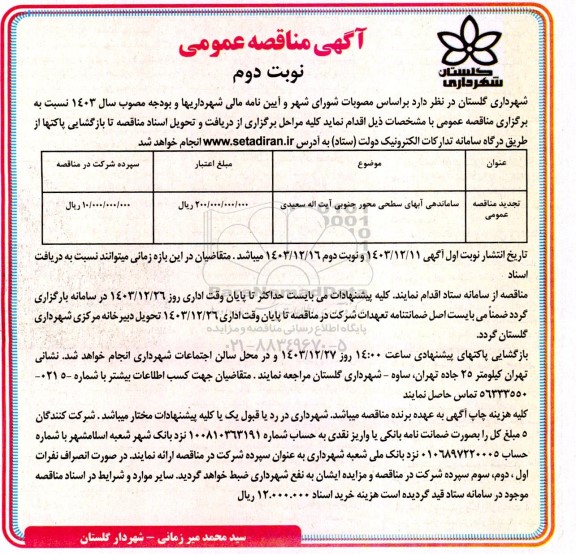 آگهی مناقصه عمومی
نوبت دوم
گلستان
شهرداری
شهرداری گلستان در نظر دارد براساس مصوبات شورای شهر و آیین نامه مالی شهرداریها و بودجه مصوب سال ۱۴۰۳ نسبت به
برگزاری مناقصه عمومی با مشخصات ذیل اقدام نماید کلیه مراحل برگزاری از دریافت و تحویل اسناد مناقصه تا بازگشایی پاکتها از
طریق درگاه سامانه تدارکات الکترونیک دولت (ستاد) به آدرس www.setadiran.ir انجام خواهد شد
عنوان موضوع مبلغ اعتبار سپرده شرکت در مناقصه
تجدید مناقصه عمومی ساماندهی آبهای سطحی محور جنوبی آیت اله سعیدی ۲۰۰/۰۰۰/۰۰۰/۰۰۰ ریال ۱۰/۰۰۰/۰۰۰/۰۰۰ ریال
تاریخ انتشار نوبت اول آگهی ۱۴۰۳/۱۲/۱۱ و نوبت دوم ۱۴۰۳/۱۲/۱۶ میباشد . متقاضیان در این بازه زمانی میتوانند نسبت به دریافت
اسناد
مناقصه از سامانه ستاد اقدام نمایند. کلیه پیشنهادات می بایست حداکثر تا پایان وقت اداری روز ۱۴۰۳/۱۲/۲۶ در سامانه بارگزاری
گردد ضمنا می بایست اصل ضمانتنامه تعهدات شرکت در مناقصه تا پایان وقت اداری ۱۴۰۳/۱۲/۲۶ تحویل دبیرخانه مرکزی شهرداری
گلستان گردد.
پایگاه اطلاع رسانی مناقصه و مزایده
۰۲۱-۸۸۳۴۹۶۷۰-۵
بازگشایی پاکتهای پیشنهادی ساعت ۱۴:۰۰ روز ۱۴۰۳/۱۲/۲۷ و در محل سالن اجتماعات شهرداری انجام خواهد شد. نشانی
تهران کیلومتر ۲۵ جاده تهران، ساوه - شهرداری گلستان مراجعه نمایند . متقاضیان جهت کسب اطلاعات بیشتر با شماره ۵-۰۲۱-
۵۶۳۳۳۵۵۰ تماس حاصل نمایند
کلیه هزینه چاپ آگهی به عهده برنده مناقصه میباشد. شهرداری در رد یا قبول یک یا کلیه پیشنهادات مختار میباشد . شرکت کنندگان
۵ مبلغ کل را بصورت ضمانت نامه بانکی یا واریز نقدی به حساب شماره ۱۰۰۸۱۰۳۶۳۱۹۱ نزد بانک شهر شعبه اسلامشهر با شماره
حساب ۰۱۰۶۸۹۷۲۲۰۰۰۵ نزد بانک ملی شعبه شهرداری به عنوان سپرده شرکت در مناقصه ارائه نمایند. در صورت انصراف نفرات
اول ، دوم، سوم سپرده شرکت در مناقصه و مزایده ایشان به نفع شهرداری ضبط خواهد گردید. سایر موارد و شرایط در اسناد مناقصه
موجود در سامانه ستاد قید گردیده است هزینه خرید اسناد ۱۲.۰۰۰.۰۰۰ ریال
سید محمد میر زمانی - شهردار گلستان